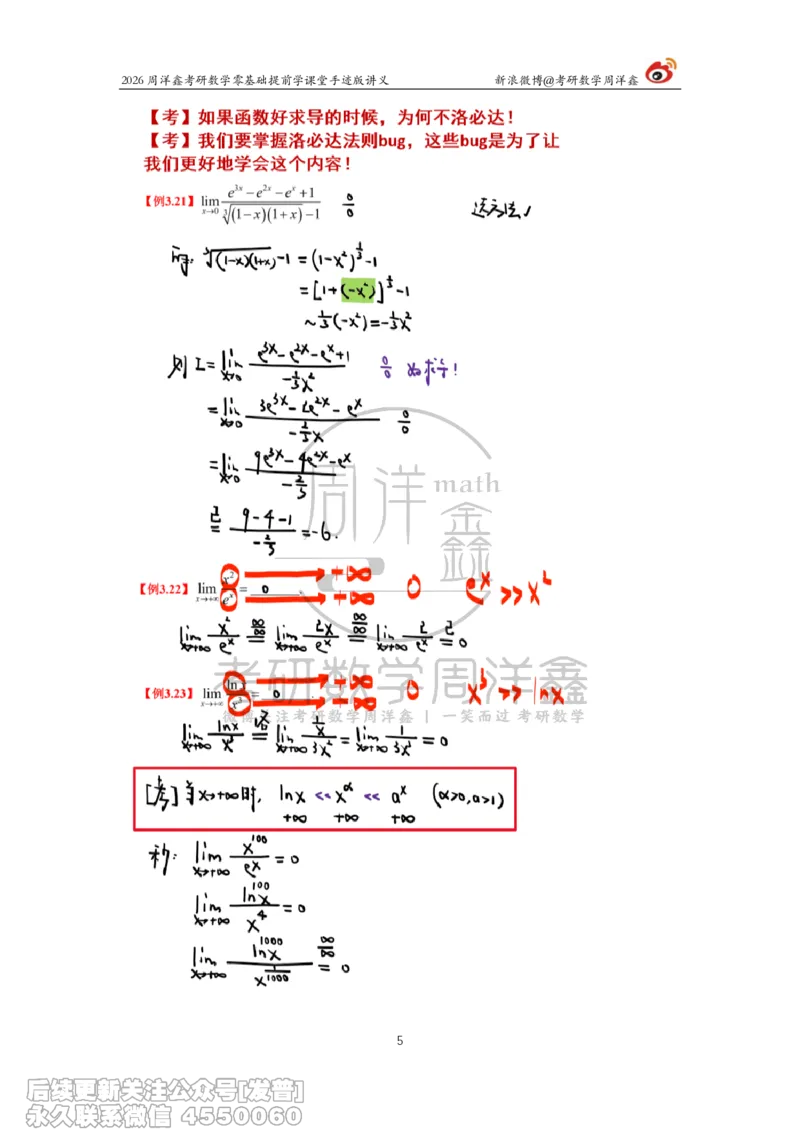 2026 周洋鑫考研数学零基础提前学课堂手迹版讲义 新浪微博@考研数学周洋鑫
【考】如果函数好求导的时候，为何不洛必达！
【考】我们要掌握洛必达法则bug，这些bug是为了让
我们更好地学会这个内容！
【例3.21】 lim x→0 (e^{3x} − e^{2x} − e^x + 1) / (∛((1−x)(1+x)) − 1) 0/0
∛((1−x)(1+x)) − 1 = (1−x²)^{1/3} − 1
= [1+(−x²)]^{1/3} − 1
~ 1/3(−x²) = −1/3 x²
则 I = lim x→0 (e^{3x} − e^{2x} − e^x + 1) / (−1/3 x²) 0/0 好求导！
= lim x→0 (3e^{3x} − 2e^{2x} − e^x) / (−2/3 x) 0/0
= lim x→0 (9e^{3x} − 4e^{2x} − e^x) / (−2/3)
周洋 math
= (9−4−1) / (−2/3) = −6.
鑫
【例3.22】 lim x→+∞ x²/e^x = 0 → +∞ → +∞ 0 e^x >> x²
lim x→+∞ x²/e^x =(∞/∞) lim x→+∞ 2x/e^x =(∞/∞) lim x→+∞ 2/e^x = 0
考研数学周洋鑫
【例3.23】 lim x→+∞ ln x/x³ = 0 → +∞ → +∞ 0 x³ >> ln x
微博关注考研数学周洋鑫 | 一笑而过 考研数学
lim x→+∞ lnx/x³ =(洛) lim x→+∞ (1/x)/(3x²) = lim x→+∞ 1/(3x³) = 0
[考] 当x→+∞时, lnx << x^α << a^x (α>0, a>1)
+∞ +∞ +∞
lim x→+∞ x^{100}/e^x = 0
lim x→+∞ ln^{100}x/x^4 = 0
lim x→+∞ ln^{1000}x/x^{1/1000} =(∞/∞) 0
5
后续更新关注公众号[发普]
永久联系微信 4550060